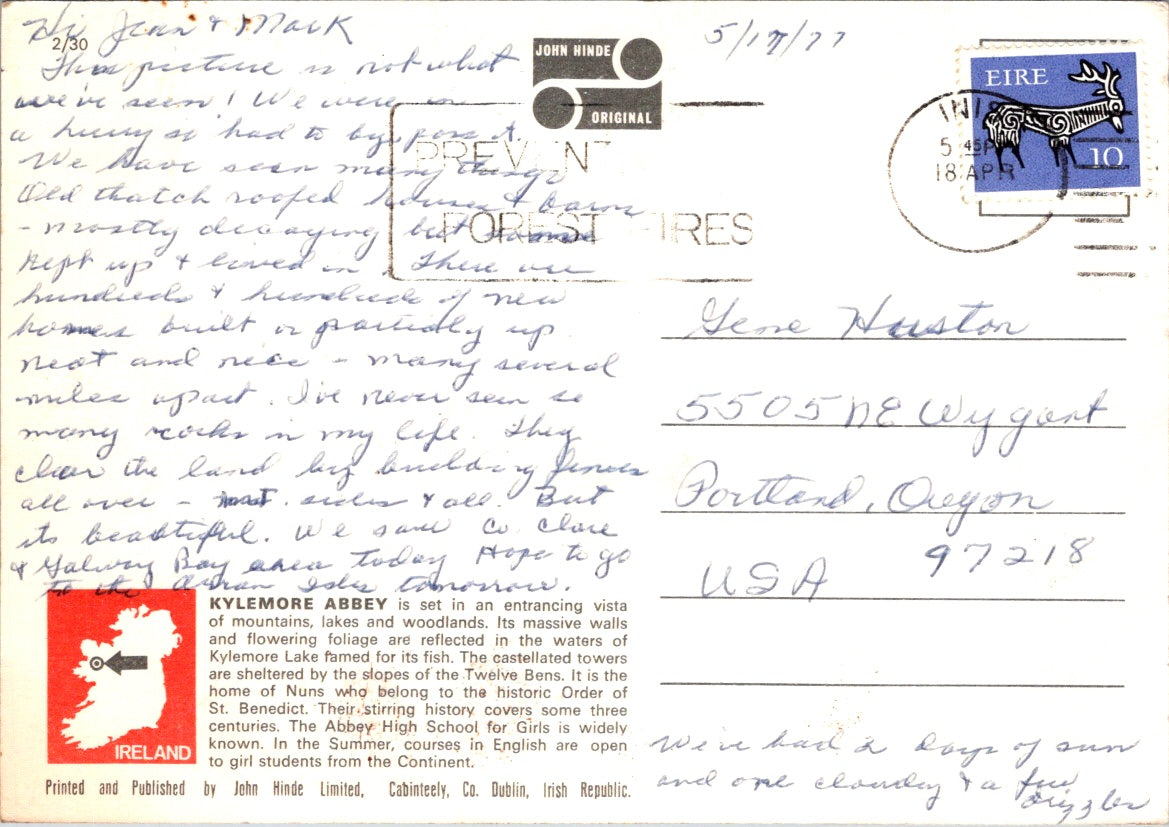 Hi Jean & Mark
2/30
5/17/77
This picture is not what
we've seen! We were in
a hurry so had to by pass it.
We have seen many things
Old thatch roofed houses & barns
- mostly decaying but some
kept up & lived in. There are
hundreds & hundreds of new
homes built or partially up
neat and nice - many several
miles apart. I've never seen so
many rocks in my life. They
clear the land by building fences
all over - sides & all. But
its beautiful. We saw Co. Clare
& Galway Bay area today Hope to go
to the Arran Isles tomorrow.
JOHN HINDE
ORIGINAL
PREVENT
FOREST FIRES
EIRE
10
INIS
5 45P
18 APR
Gene Huston
5505 NE Wygant
Portland, Oregon
97218
USA
We've had 2 days of sun
and one cloudy & a few
drizzles
KYLEMORE ABBEY is set in an entrancing vista
of mountains, lakes and woodlands. Its massive walls
and flowering foliage are reflected in the waters of
Kylemore Lake famed for its fish. The castellated towers
are sheltered by the slopes of the Twelve Bens. It is the
home of Nuns who belong to the historic Order of
St. Benedict. Their stirring history covers some three
centuries. The Abbey High School for Girls is widely
known. In the Summer, courses in English are open
to girl students from the Continent.
IRELAND
Printed and Published by John Hinde Limited, Cabinteely, Co. Dublin, Irish Republic.